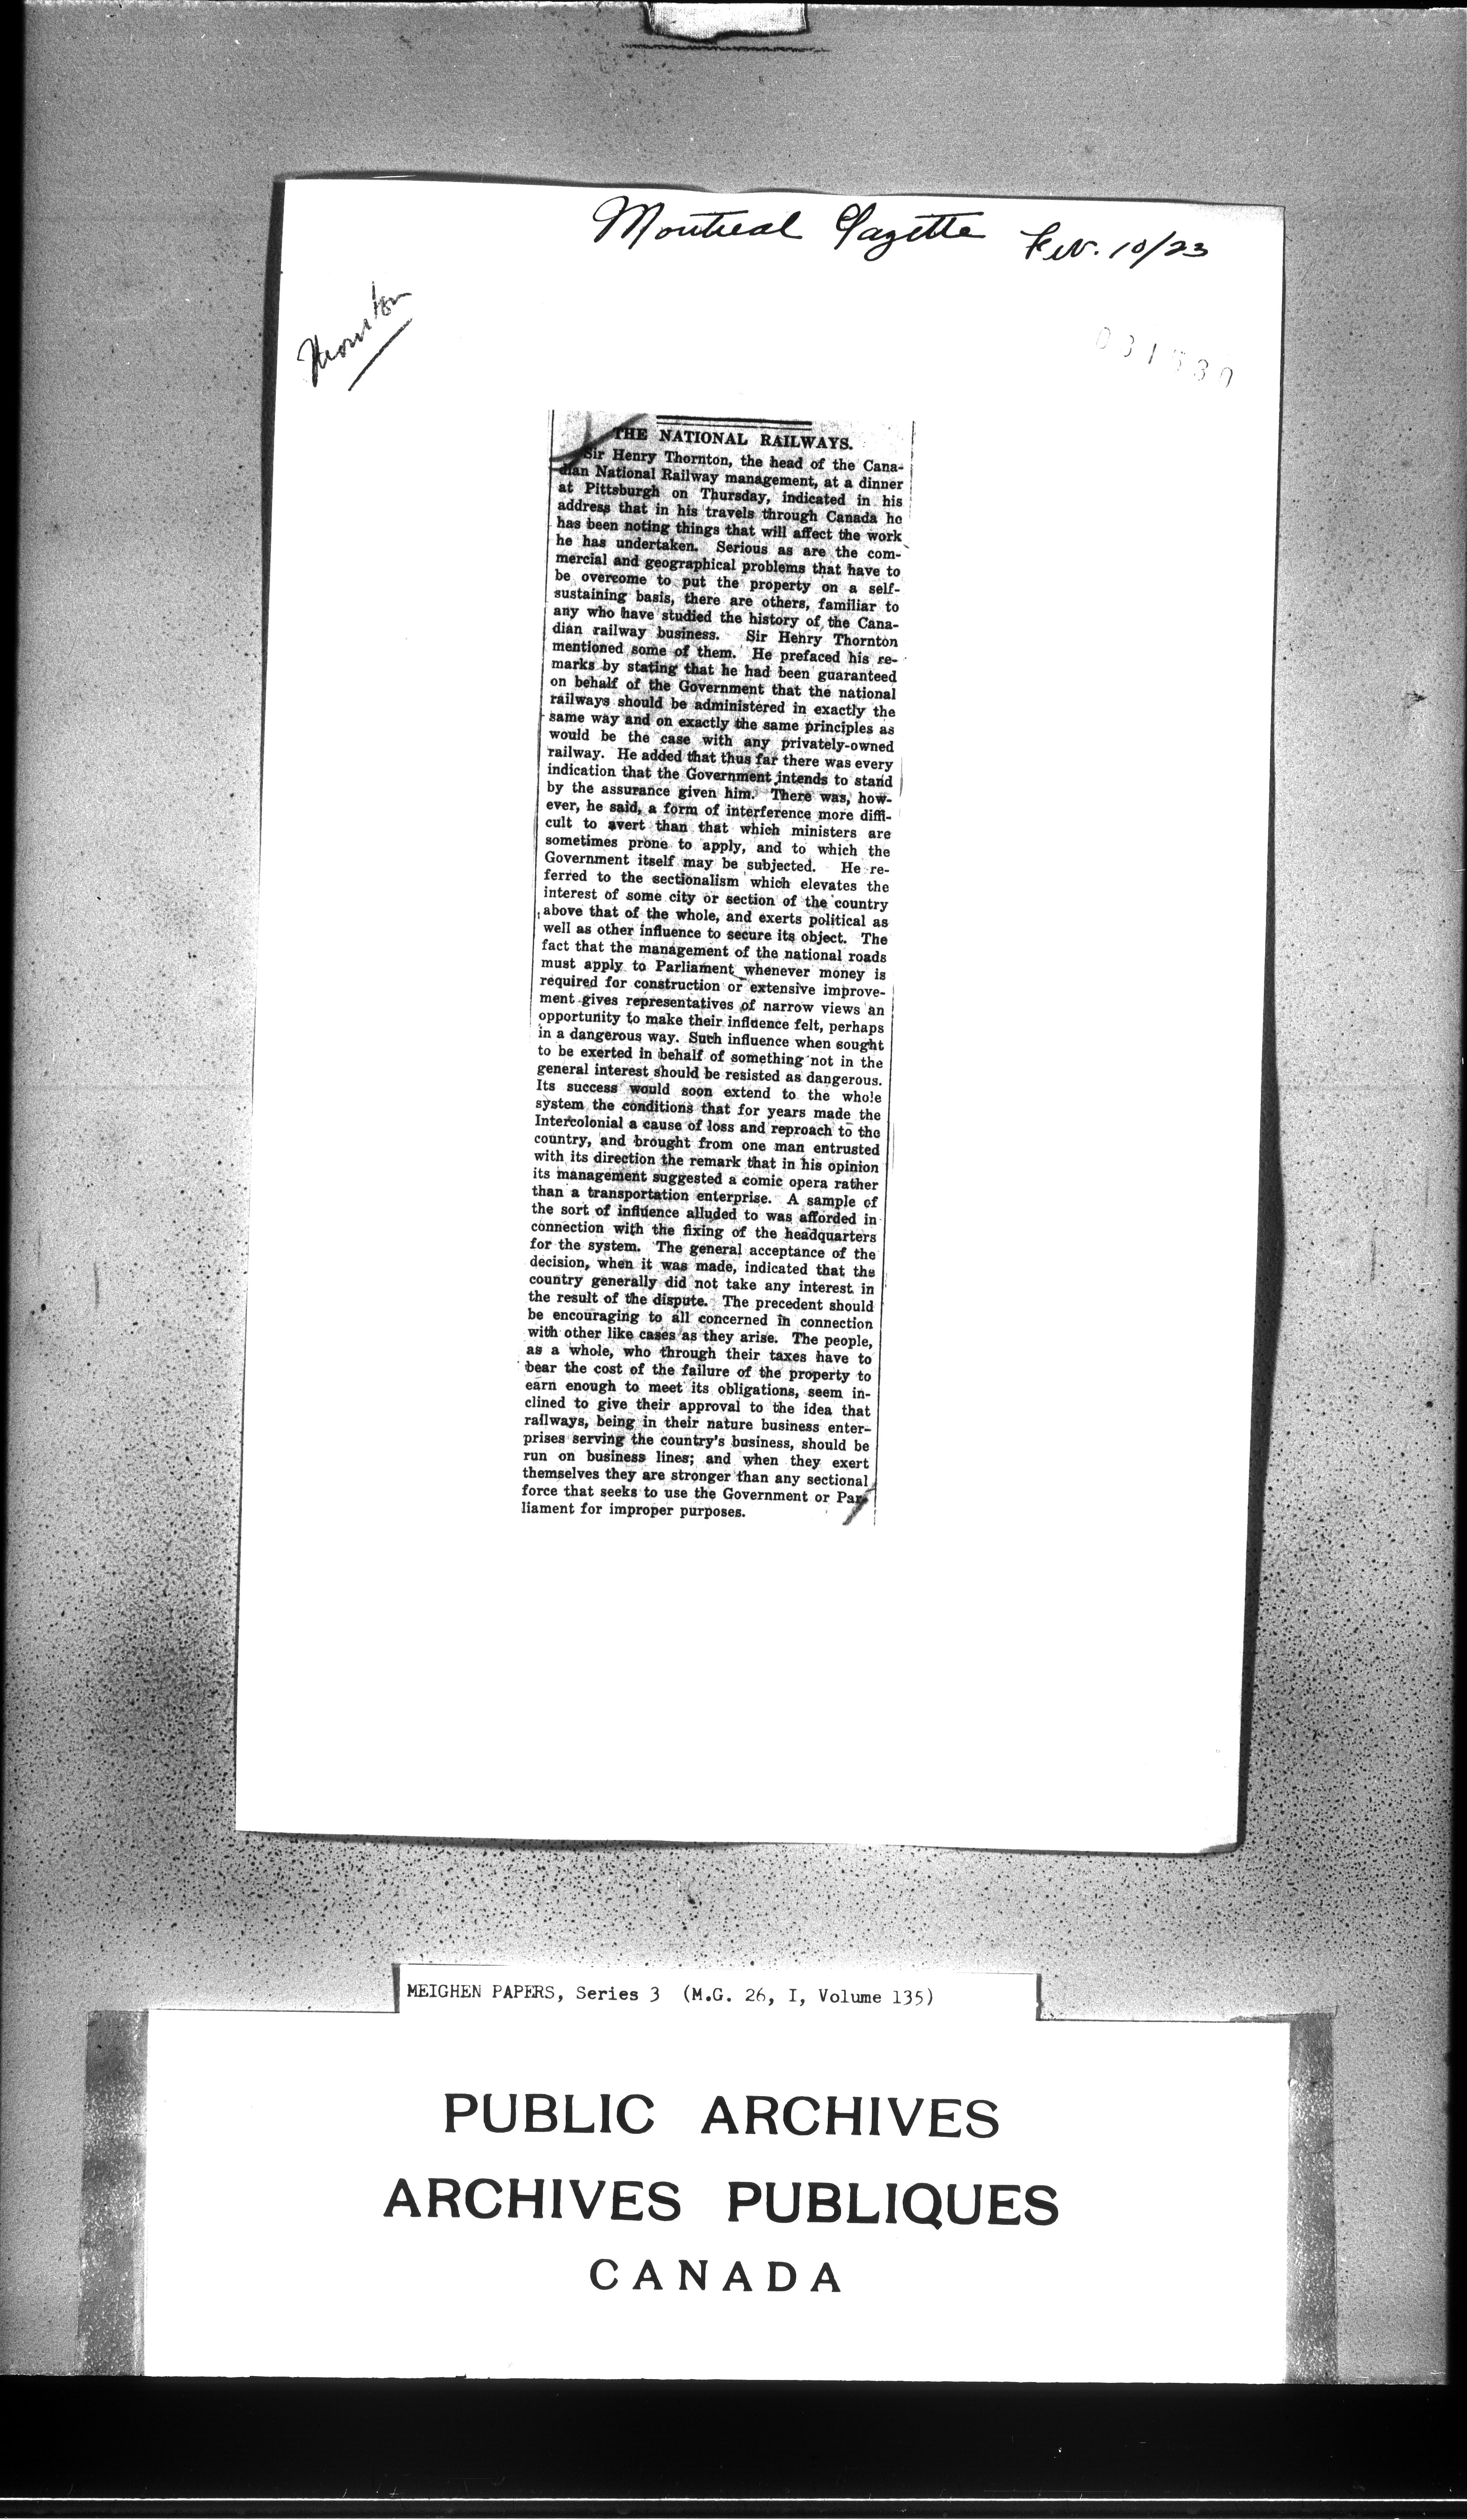 Montreal Gazette Feb. 10/23
Thornton
031530
THE NATIONAL RAILWAYS.
Sir Henry Thornton, the head of the Cana-
dian National Railway management, at a dinner
at Pittsburgh on Thursday, indicated in his
address that in his travels through Canada he
has been noting things that will affect the work
he has undertaken. Serious as are the com-
mercial and geographical problems that have to
be overcome to put the property on a self-
sustaining basis, there are others, familiar to
any who have studied the history of the Cana-
dian railway business. Sir Henry Thornton
mentioned some of them. He prefaced his re-
marks by stating that he had been guaranteed
on behalf of the Government that the national
railways should be administered in exactly the
same way and on exactly the same principles as
would be the case with any privately-owned
railway. He added that thus far there was every
indication that the Government intends to stand
by the assurance given him. There was, how-
ever, he said, a form of interference more diffi-
cult to avert than that which ministers are
sometimes prone to apply, and to which the
Government itself may be subjected. He re-
ferred to the sectionalism which elevates the
interest of some city or section of the country
above that of the whole, and exerts political as
well as other influence to secure its object. The
fact that the management of the national roads
must apply to Parliament whenever money is
required for construction or extensive improve-
ment gives representatives of narrow views an
opportunity to make their influence felt, perhaps
in a dangerous way. Such influence when sought
to be exerted in behalf of something not in the
general interest should be resisted as dangerous.
Its success would soon extend to the whole
system the conditions that for years made the
Intercolonial a cause of loss and reproach to the
country, and brought from one man entrusted
with its direction the remark that in his opinion
its management suggested a comic opera rather
than a transportation enterprise. A sample of
the sort of influence alluded to was afforded in
connection with the fixing of the headquarters
for the system. The general acceptance of the
decision, when it was made, indicated that the
country generally did not take any interest in
the result of the dispute. The precedent should
be encouraging to all concerned in connection
with other like cases as they arise. The people,
as a whole, who through their taxes have to
bear the cost of the failure of the property to
earn enough to meet its obligations, seem in-
clined to give their approval to the idea that
railways, being in their nature business enter-
prises serving the country's business, should be
run on business lines; and when they exert
themselves they are stronger than any sectional
force that seeks to use the Government or Par-
liament for improper purposes.
MEIGHEN PAPERS, Series 3 (M.G. 26, I, Volume 135)
PUBLIC ARCHIVES
ARCHIVES PUBLIQUES
CANADA